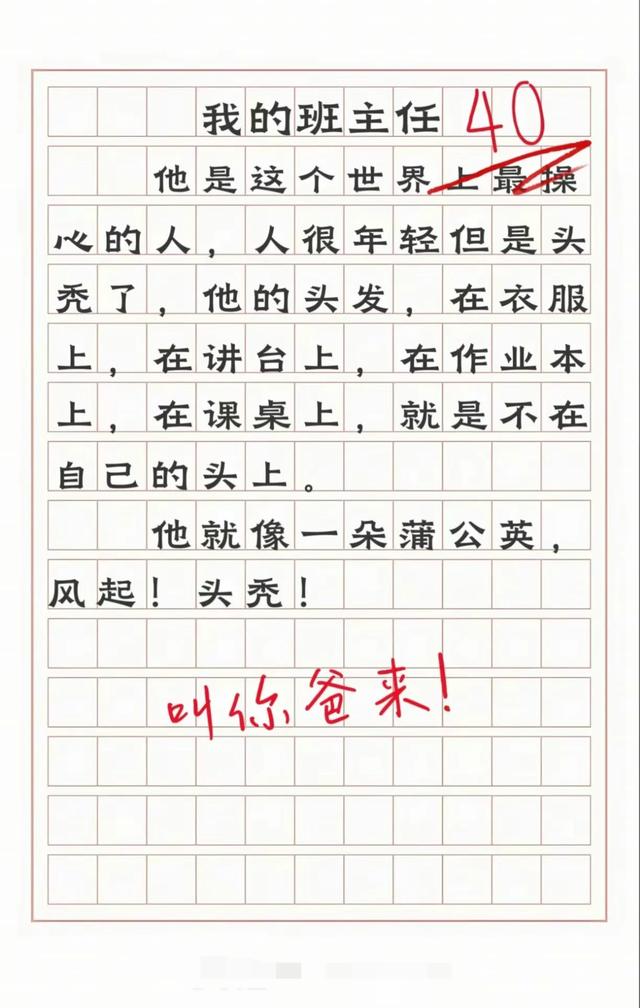 我的班主任 40
他是这个世界上最操
心的人，人很年轻但是头
秃了，他的头发，在衣服
上，在讲台上，在作业本
上，在课桌上，就是不在
自己的头上。
他就像一朵蒲公英，
风起！头秃！
叫你爸来！